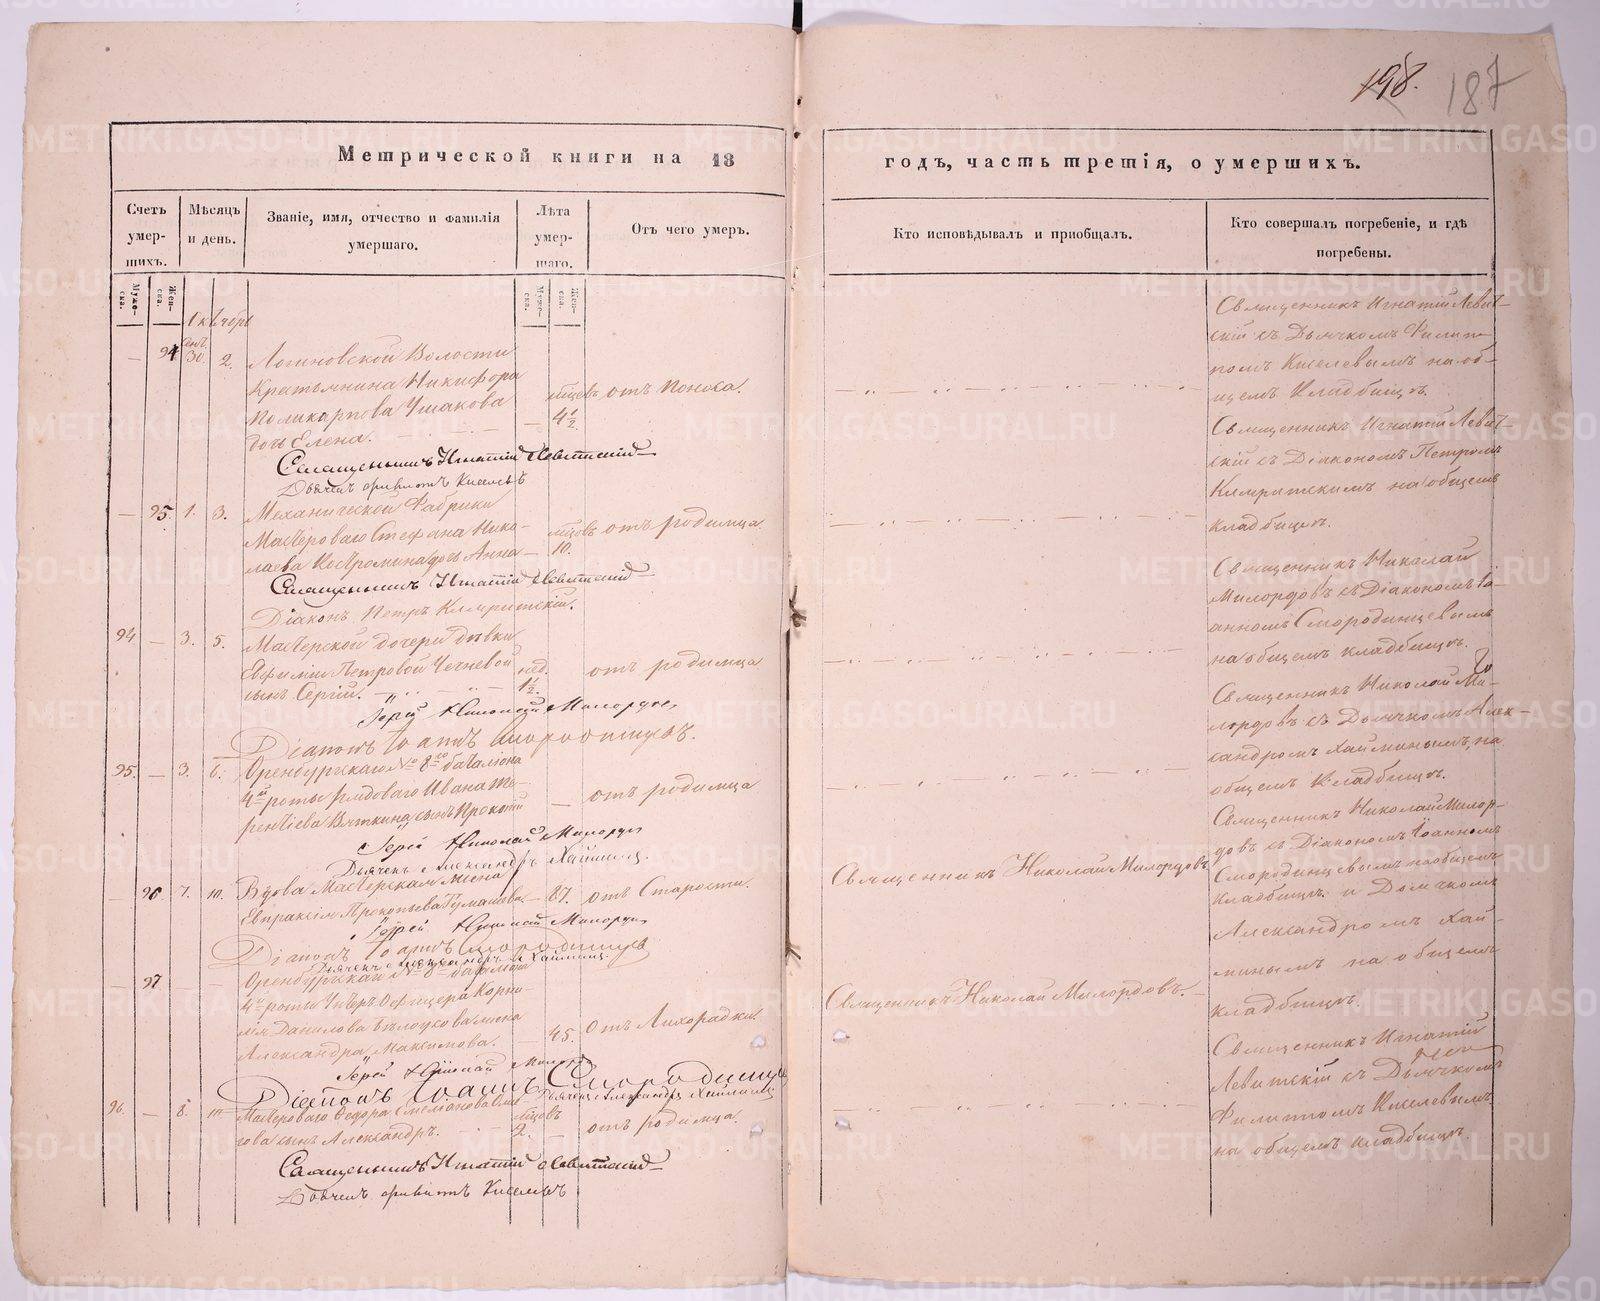 198. 187
Метрической книги на 18
годъ, часть третія, о умершихъ.
Счетъ умер-шихъ.
Мѣсяцъ и день.
Званіе, имя, отчество и фамилія умершаго.
Лѣта умер-шаго.
Отъ чего умеръ.
Кто исповѣдывалъ и пріобщалъ.
Кто совершалъ погребеніе, и гдѣ погребены.
Муже-ска.
Жен-ска.
Муже-ска.
Жен-ска.
— 94 30. 2. Логиновской Волости
Крестьянина Никифора
Поликарпова Ушакова
дочь Елена.
мѣсяцъ 4 1/2
отъ поноса.
Священникъ Игнатій Левитскій
Дьячекъ Филиппъ Киселевъ
Священникъ Игнатій Левит-
скій съ Дьячкомъ Филип-
помъ Киселевымъ на об-
щемъ Кладбищѣ.
— 95. 1. 3. Механической Фабрики
Мастероваго Стефана Нико-
лаева Костромина дочь Анна
10.
отъ родимца
Священникъ Игнатій Левитскій
Діаконъ Петръ
Священникъ Игнатій Левит-
скій съ Діакономъ Петромъ
на общемъ
кладбищѣ.
94 — 3. 5. Мастерской дочери дѣвки
Евфиміи Петровой
сынъ Сергій.
нед. 1 1/2.
отъ родимца
Іерей Николай Милордовъ
Діаконъ Іоаннъ Смородинцевъ.
Священникъ Николай
Милордовъ съ Діакономъ Іо-
анномъ Смородинцевымъ
на общемъ кладбищѣ.
95. — 3. 6. Оренбургскаго № 8го баталіона
4й роты рядоваго Ивана Те-
рентіева Вяткина сынъ Прокопій
отъ родимца
Іерей Николай Милордовъ
Дьячекъ Александръ Хайминъ.
Священникъ Николай Ми-
лордовъ съ Дьячкомъ Алек-
сандромъ Хайминымъ, на
общемъ Кладбищѣ.
— 96 7. 10. Вдова Мастерская жена
Евпраксія Прокопьева
87. отъ Старости.
Священникъ Николай Милордовъ.
Іерей Николай Милордовъ
Діаконъ Іоаннъ Смородинцевъ
Дьячекъ Александръ Хайминъ.
Священникъ Николай Милор-
довъ съ Діакономъ Іоанномъ
Смородинцевымъ на общемъ
Кладбищѣ. и Дьячкомъ
Александромъ Хай-
минымъ на общемъ
кладбищѣ.
— 97 — — Оренбургскаго № 8го баталіона
4й роты Унтеръ Офицера Корни-
лія Данилова жена
Александра Максимова.
45. отъ Лихорадки
Священникъ Николай Милордовъ.
Іерей Николай Милордовъ
Діаконъ Іоаннъ Смородинцевъ
Дьячекъ Александръ Хайминъ
96. — 8. Мастероваго Федора
сынъ Александръ.
2.
отъ родимца.
Священникъ Игнатій Левитскій
Дьячекъ Филиппъ Киселевъ
Священникъ Игнатій
Левитскій съ Дьячкомъ
Филиппомъ Киселевымъ
на общемъ кладбищѣ.
METRIKI.GASO-URAL.RU